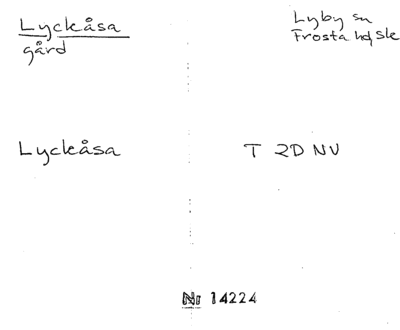 Lyckåsa
gård
Lyby sn
Frosta hd, Sk
Lyckåsa
T 2D NV
Nr 14224